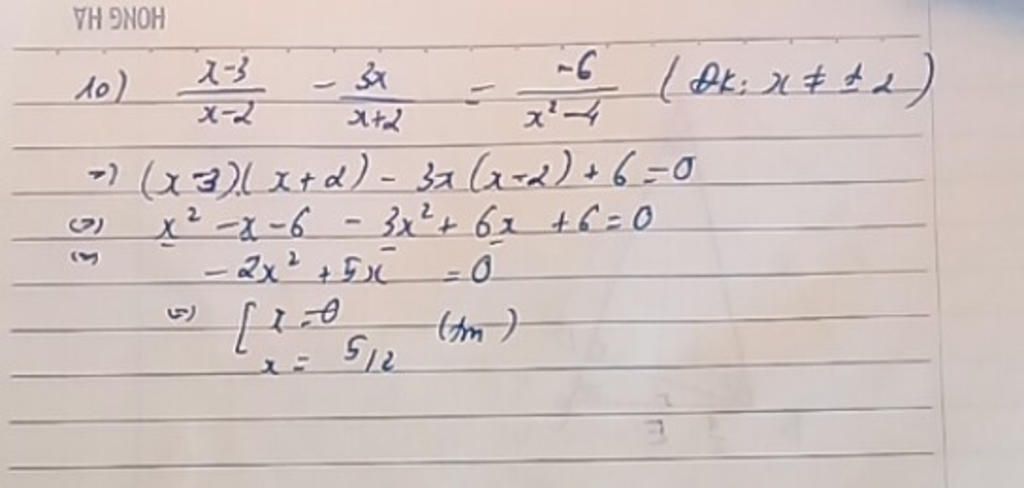 HONG HA
10) \frac{x-3}{x-2} - \frac{3x}{x+2} = \frac{-6}{x^2-4} (ĐK: x ≠ ± 2)
=> (x-3)(x+2) - 3x(x-2) + 6 = 0
<=> x^2 - x - 6 - 3x^2 + 6x + 6 = 0
<=> -2x^2 + 5x = 0
<=> [ x = 0
x = 5/2 (tm)